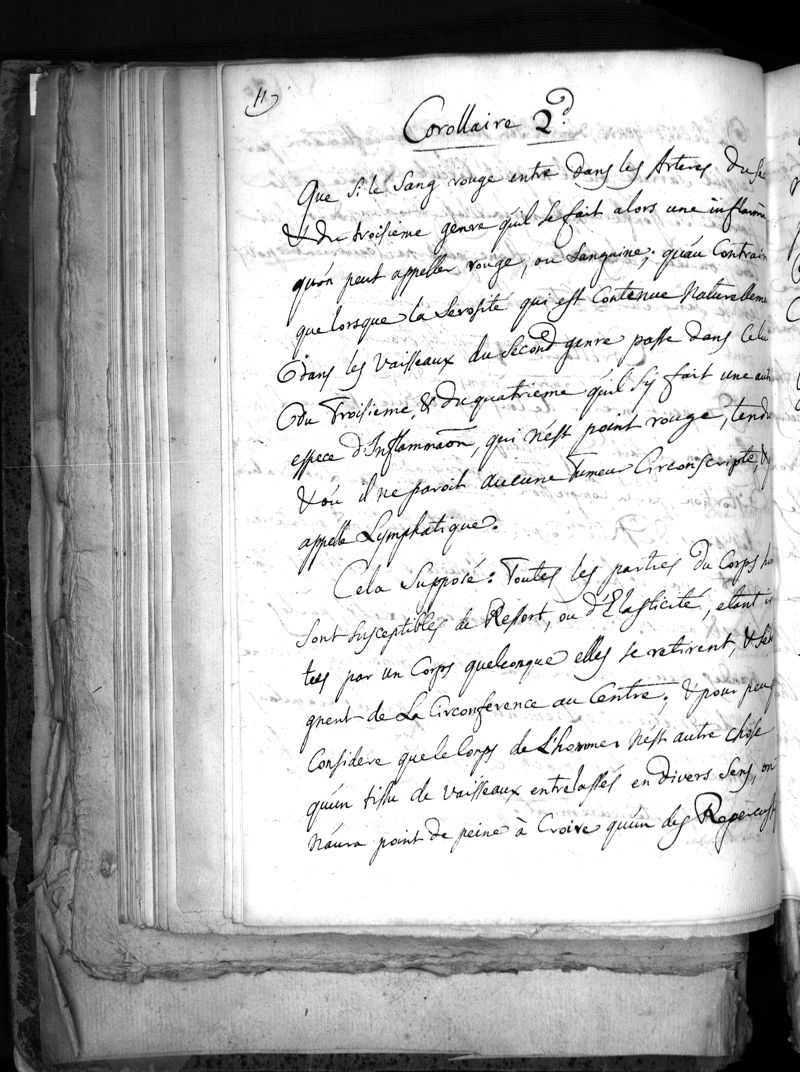 11
Corollaire 2.d
Que si le Sang rouge entre dans les Arteres du Se
& du troisieme genre qu'il se fait alors une inflamm
qu'on peut appeller rouge, ou Sanguine; qu'au Contrair
que lorsque la Serosité qui est Contenue Naturelleme
dans les Vaisseaux du Second genre passe dans Celu
du Troisieme, & du quatrieme qu'il s'y fait une autr
espece d'Inflammaôn, qui n'est point rouge, tendu
& ou il ne paroit aucune Tumeur Circonscripte, &
appelle Lymphatique.
Cela Supposé: Toutes les parties du Corps hu
sont susceptibles de Ressort, ou d'Elasticité, etant ir
tées par un Corps quelconque elles se retirent, & se
gnent de La Circonference au Centre; & pour peu q
Considere que le Corps de L'homme N'est autre chose
qu'un tissu de Vaisseaux entrelassés en divers Sens, on
N'aura point de peine à Croire qu'un des Repercuss